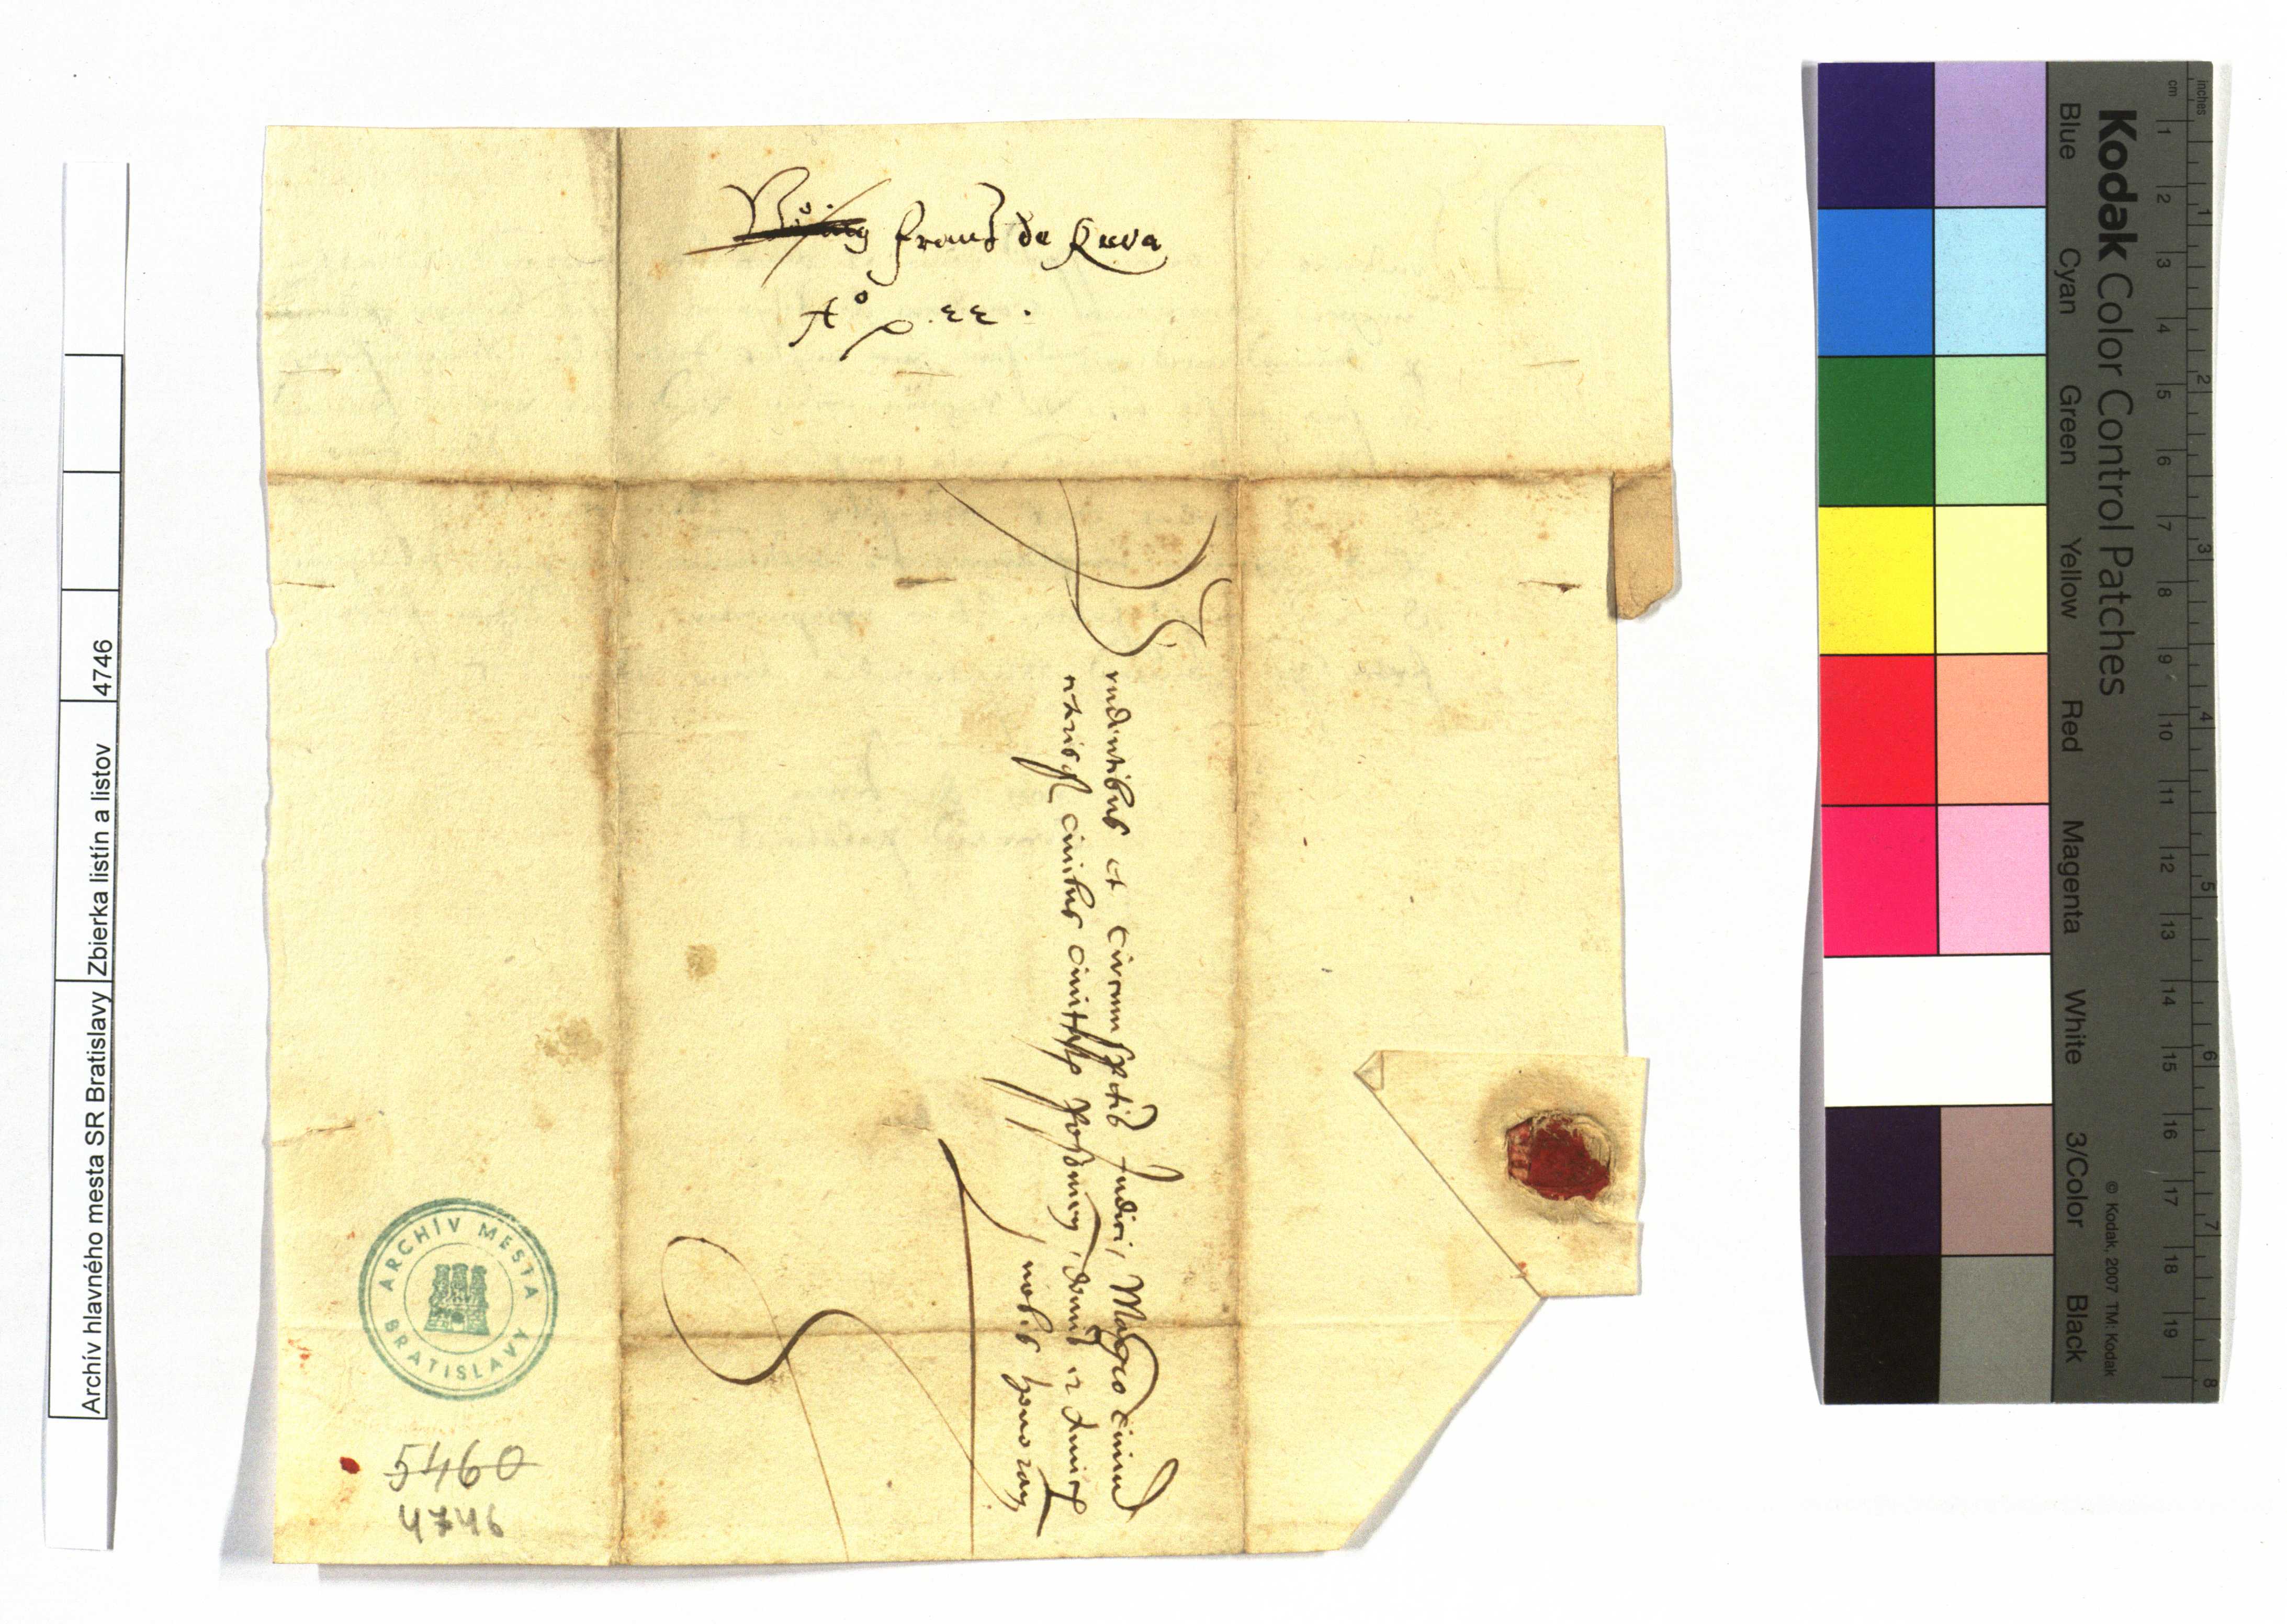 Franc de Reva
Aº .22.
Prudentibus et circumspectis Judici, Magro civium
ceterisq civibus civitatis posonien, dominis et Amicis
nobis honoran
ARCHÍV MESTA
BRATISLAVY
5460
4746
Archív hlavného mesta SR Bratislavy
Zbierka listín a listov
4746
Kodak Color Control Patches
Blue
Cyan
Green
Yellow
Red
Magenta
White
3/Color
Black
© Kodak, 2007 TM: Kodak
inches
1
2
3
4
5
6
7
8
cm
1
2
3
4
5
6
7
8
9
10
11
12
13
14
15
16
17
18
19